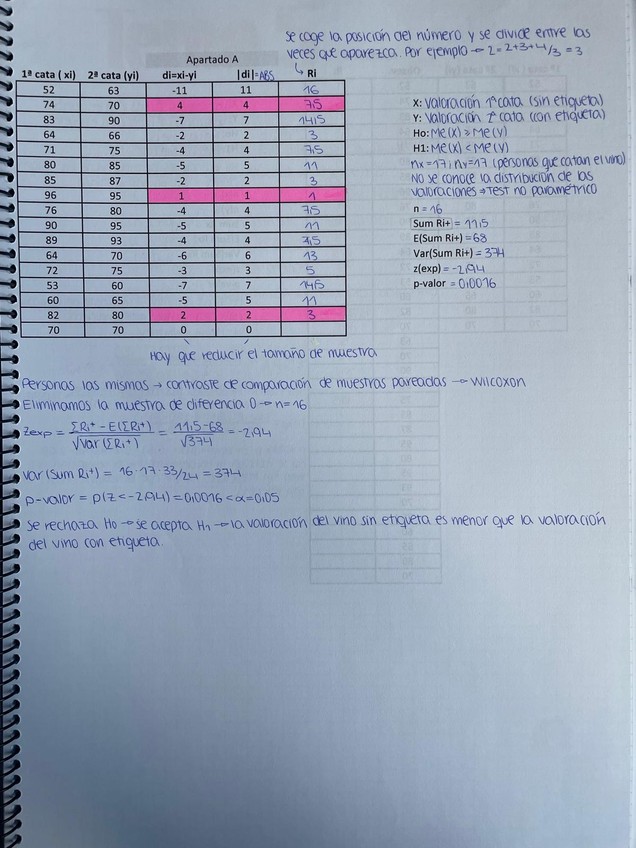 Se coge la posición del número y se divide entre las
veces que aparezca. Por ejemplo → 2 = 2+3+4/3 = 3
Apartado A
1ª cata ( xi) 2ª cata (yi) di=xi-yi |di|=ABS Ri
52 63 -11 11 16
74 70 4 4 7,5
83 90 -7 7 14,5
64 66 -2 2 3
71 75 -4 4 7,5
80 85 -5 5 11
85 87 -2 2 3
96 95 1 1 1
76 80 -4 4 7,5
90 95 -5 5 11
89 93 -4 4 7,5
64 70 -6 6 13
72 75 -3 3 5
53 60 -7 7 14,5
60 65 -5 5 11
82 80 2 2 3
70 70 0 0
X: Valoración 1ª cata (sin etiqueta)
Y: Valoración 2ª cata (con etiqueta)
Ho: Me(X) ≥ Me(Y)
H1: Me(X) < Me(Y)
nx = 17; ny = 17 (personas que catan el vino)
No se conoce la distribución de las
valoraciones → Test no paramétrico
n = 16
Sum Ri+ = 11,5
E(Sum Ri+) = 68
Var(Sum Ri+) = 374
z(exp) = -2,94
p-valor = 0,0016
Hay que reducir el tamaño de muestra
Personas las mismas → contraste de comparación de muestras pareadas → Wilcoxon
Eliminamos la muestra de diferencia 0 → n=16
Zexp = ΣRi+ - E(ΣRi+)/√Var (ΣRi+) = 11,5-68/√374 = -2,94
Var (Sum Ri+) = 16·17·33/24 = 374
P-valor = P(Z < -2,94) = 0,0016 < α = 0,05
Se rechaza H0 → se acepta H1 → la valoración del vino sin etiqueta es menor que la valoración
del vino con etiqueta.